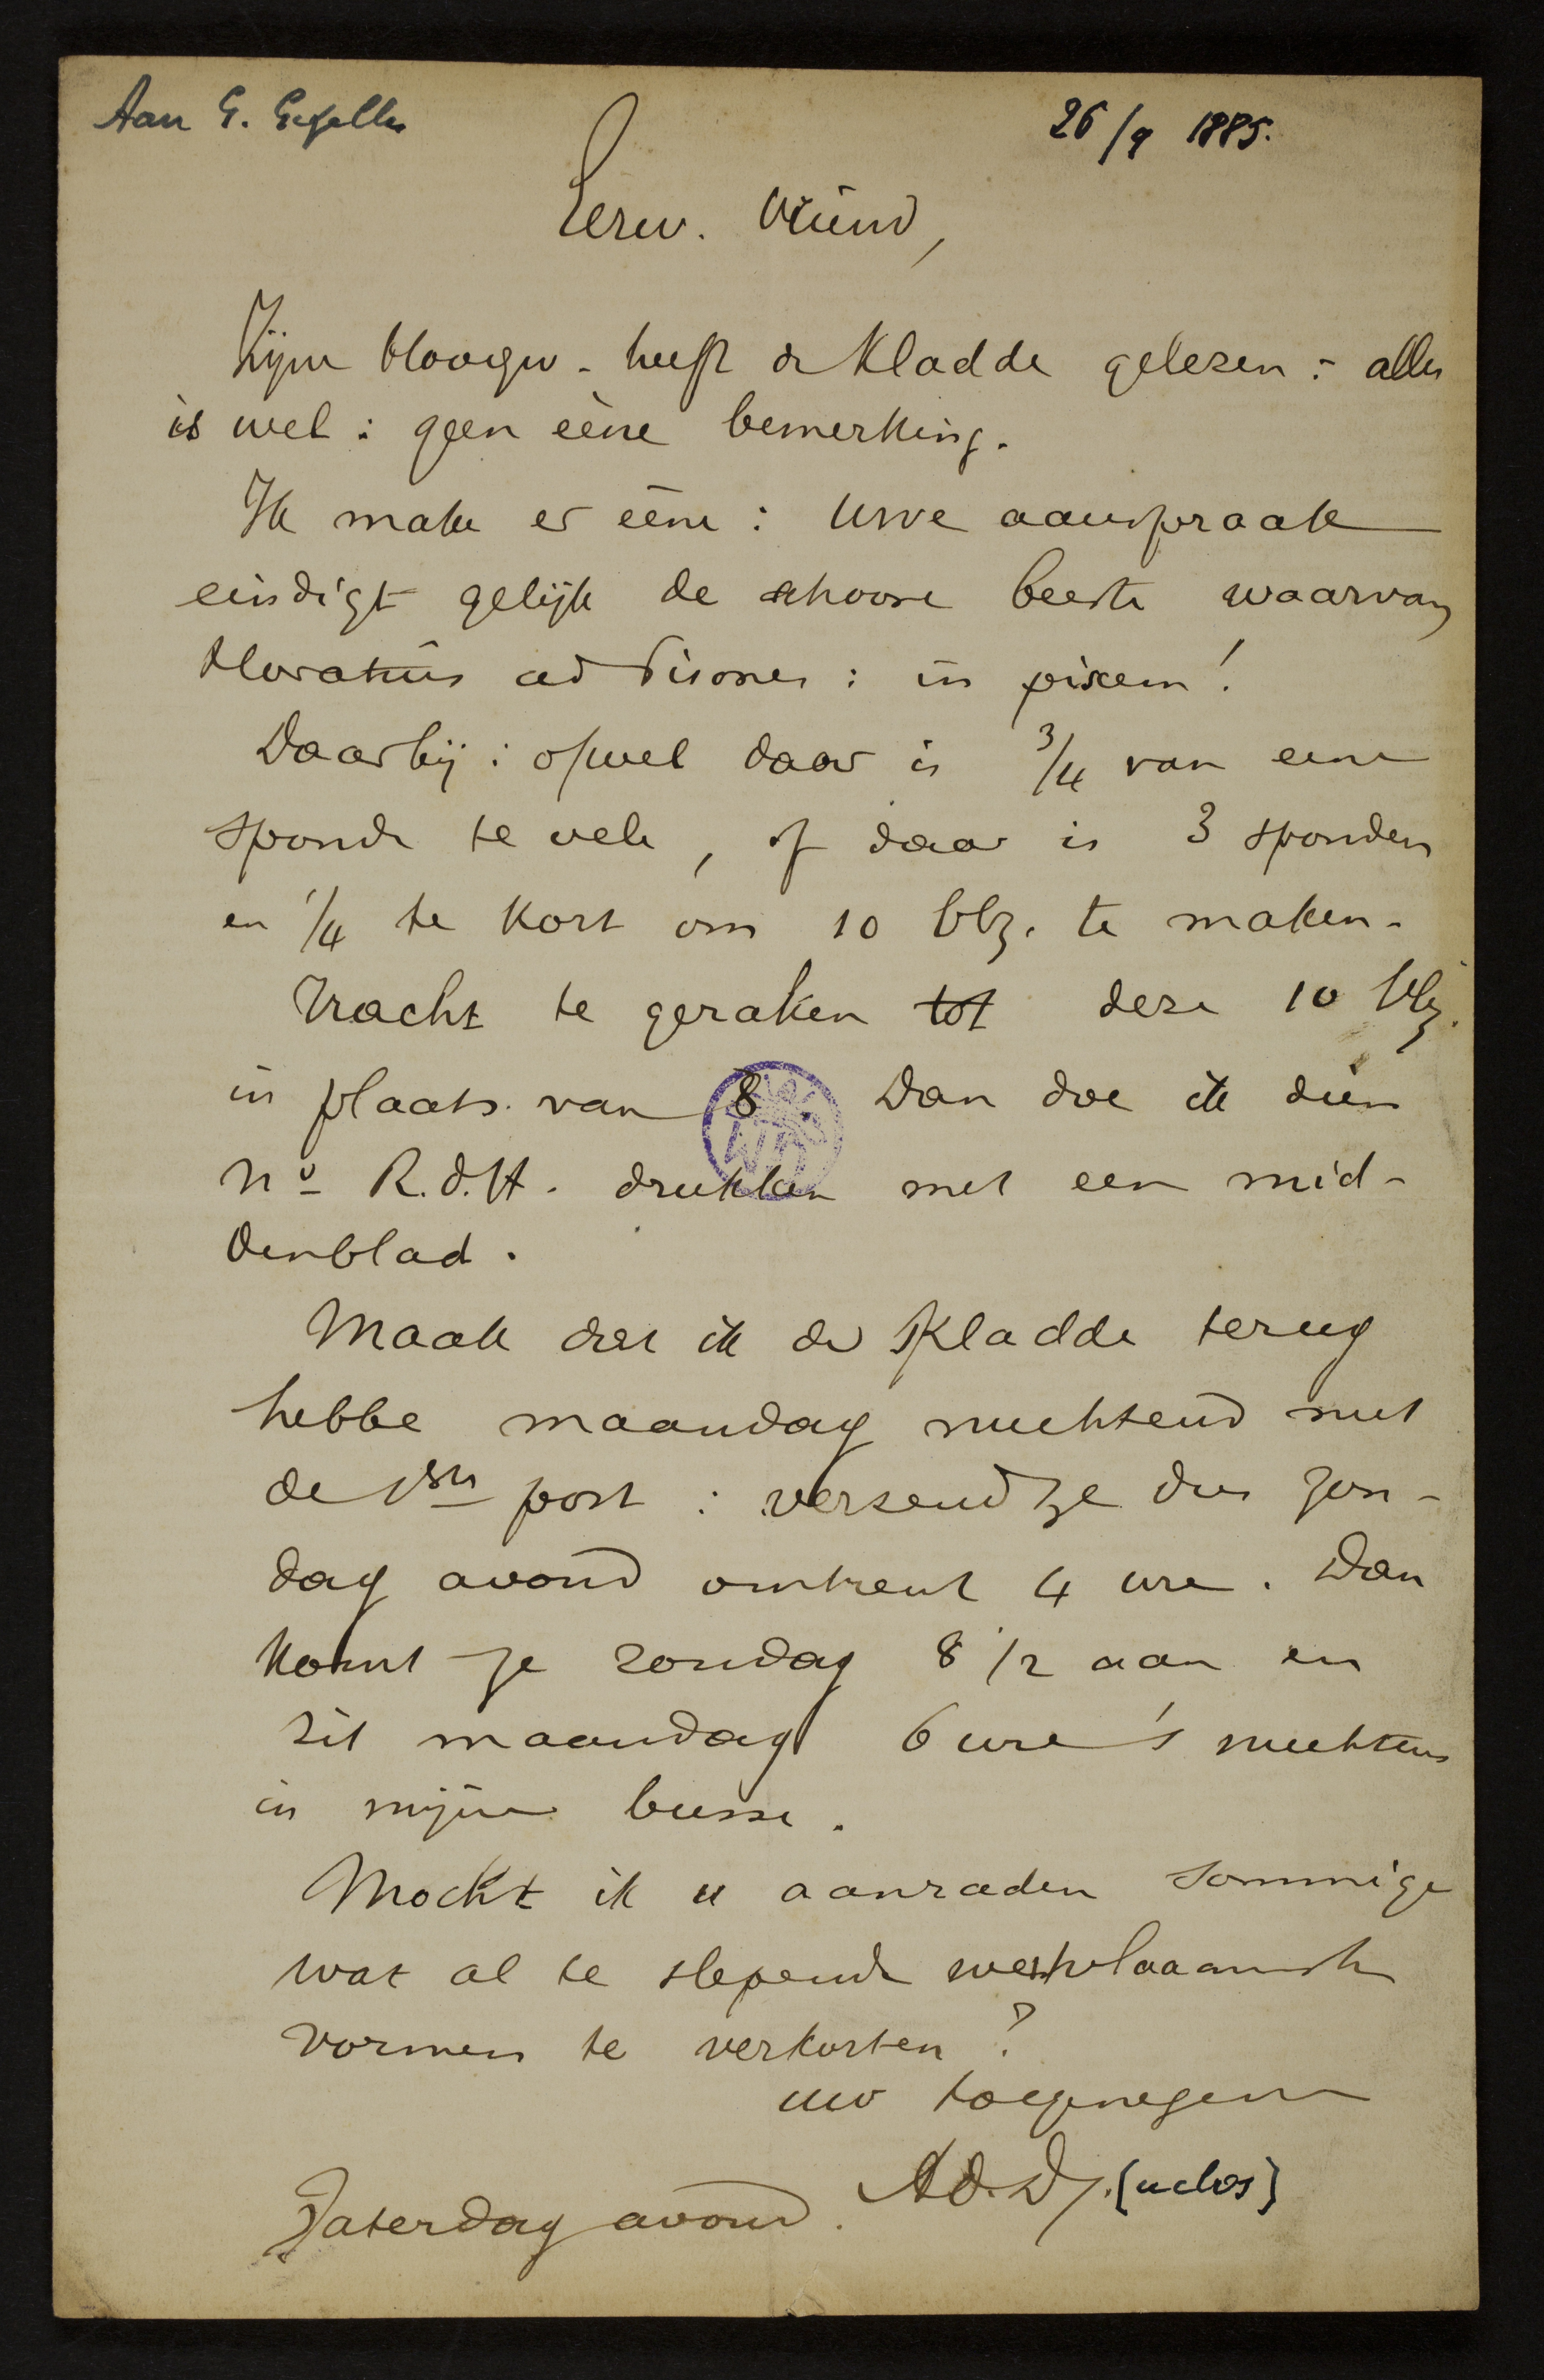 Aan G. Gezelle
26/9 1885.
Eerw. Vriend,
Zijne Hoogw. heeft de Kladde gelezen: alles
is wel: geen eene bemerking.
Ik make er eene: Uwe aanspraak
eindigt gelijk de schoone beeste waarvan
Horatius ad Pisones: in piscem!
Daarbij: ofwel daar is 3/4 van eene
sponde te vele, of daar is 3 sponden
en 1/4 te kort om 10 blz. te maken.
Tracht te geraken tot deze 10 blz.
in plaats van 8. Dan doe ik dien
No R.d.H. drukken met een mid-
denblad.
Maak dat ik de Kladde terug
hebbe maandag nuchtend met
de 1ste post: verzend ze dus zon-
dag avond omtrent 4 ure. Dan
komt ze zondag 8 1/2 aan en
zit maandag 6 ure 's nuchtens
in mijne busse.
Mocht ik u aanraden sommige
wat al te slepende westvlaamsche
vormen te verkorten?
uw toegenegene
Ad. D. (uclos)
Zaterdag avond.